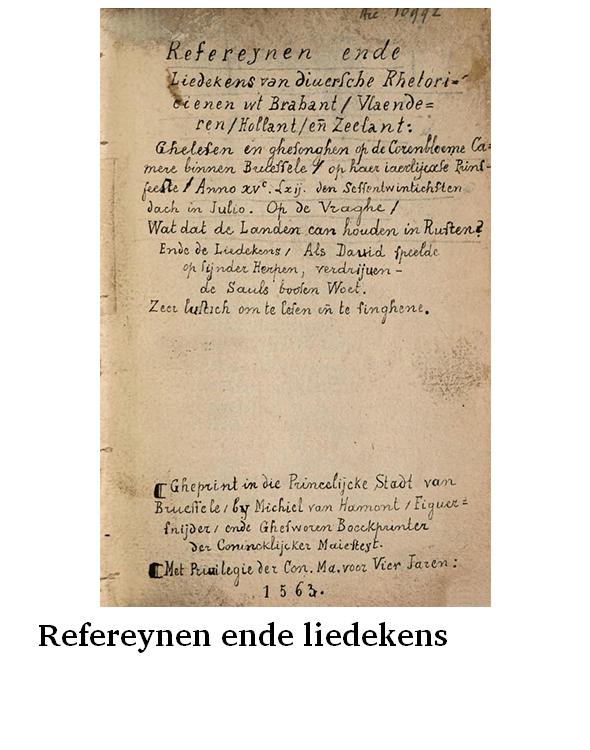 Acc. 10992
Refereynen ende
Liedekens van diuersche Rhetori=
cienen wt Brabant / Vlaende=
ren / Hollant / en̄ Zeelant:
Ghelesen en ghesonghen op de Corenbloeme Ca=
mere binnen Bruessele / op haer iaerlijcxse Prins=
feeste / Anno xvᶜ. Lxij. den Sessentwintichsten
dach in Julio. Op de Vraghe /
Wat dat de Landen can houden in Rusten?
Ende de Liedekens / Als David speelde
op sijnder Herpen, verdrijuen-
de Sauls boosen Woet.
Zeer lustich om te lesen en̄ te singhene.
Gheprint in die Princelijcke Stadt van
Bruessele / by Michiel van Hamont / Figuer=
snijder / ende Ghesworen Boeckprinter
der Conincklijcker Maiesteyt.
Met Priuilegie der Con. Ma. voor Vier Jaren:
1563.
Refereynen ende liedekens